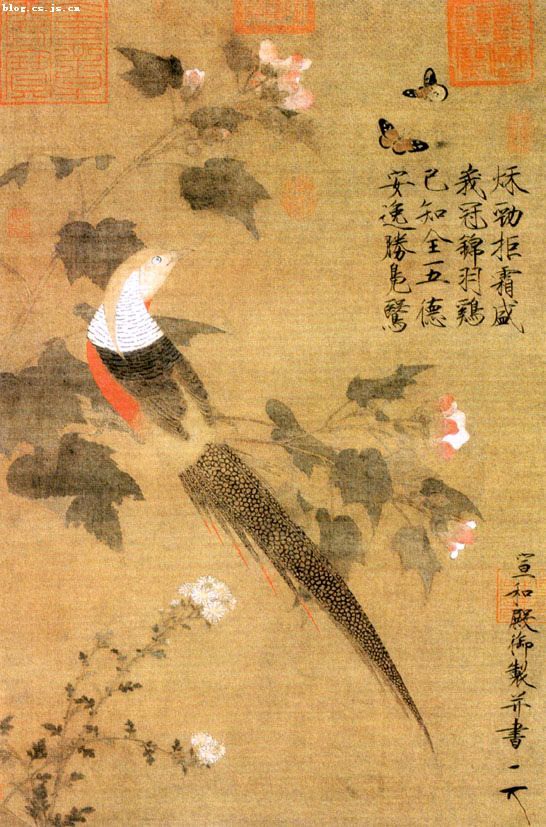 blog.cs.js.cn
秋勁拒霜盛
峩冠錦羽鷄
已知全五德
安逸勝鳬鷖
宣和殿御製并書